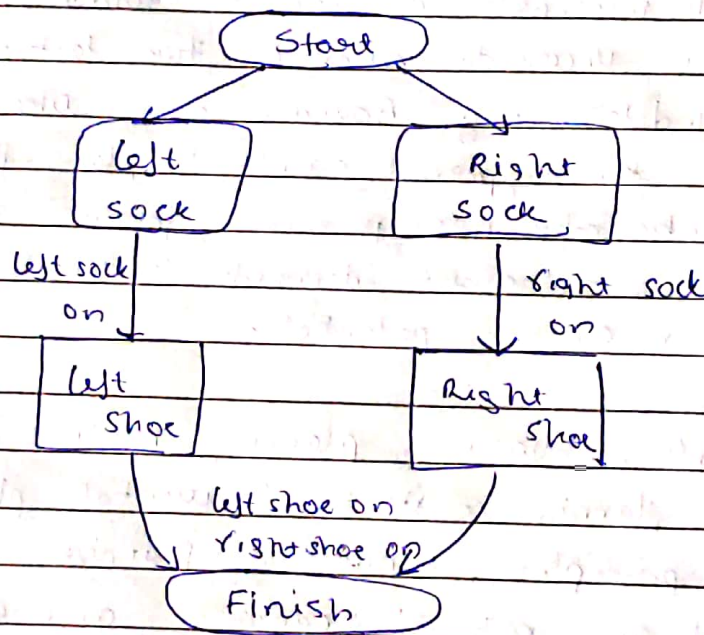 Start
Left
sock
Right
sock
left sock
on
right sock
on
Left
Shoe
Right
Shoe
left shoe on
right shoe on
Finish